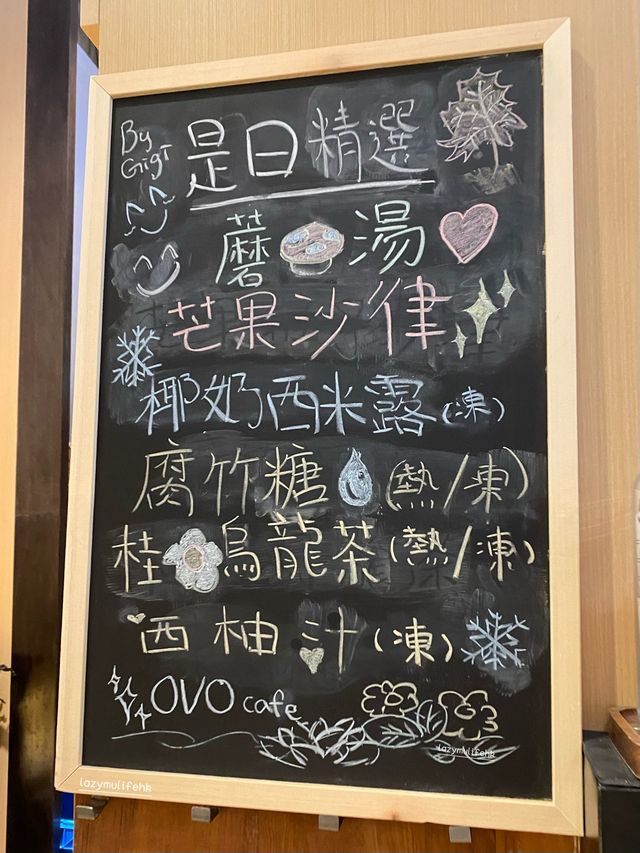 By Gigi
是日精選
蘑湯
芒果沙律
椰奶西米露(凍)
腐竹糖(熱/凍)
桂烏龍茶(熱/凍)
西柚汁(凍)
OVO cafe
lazymulifehk
lazymulifehk